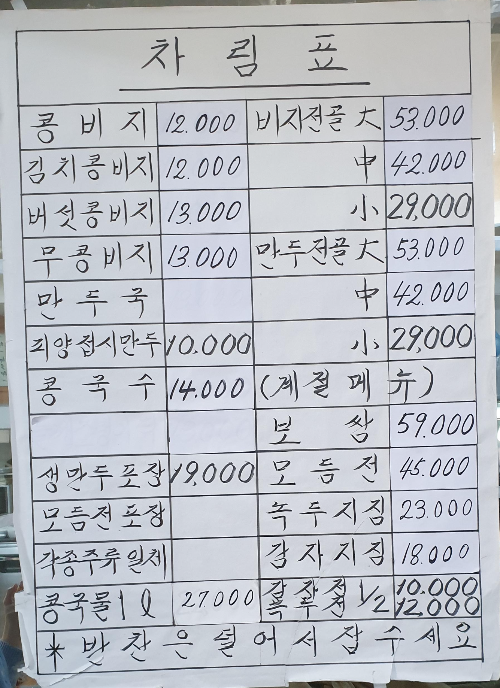 차림표
콩비지 12.000 비지전골 大 53.000
김치콩비지 12.000 中 42.000
버섯콩비지 13.000 小 29,000
무콩비지 13.000 만두전골 大 53.000
만두국 中 42.000
피양접시만두 10.000 小 29,000
콩국수 14.000 (계절메뉴)
보쌈 59.000
생만두포장 19.000 모듬전 45.000
모듬전포장 녹두지짐 23.000
각종주류일체 감자지짐 18.000
콩국물1ℓ 27.000 감자전 1/2 10.000
녹두전 12.000
*반찬은 덜어서잡수세요